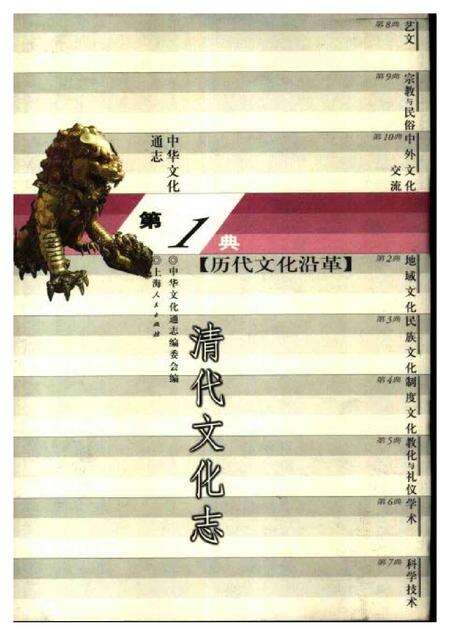 第8典
艺文
第9典
宗教与民俗
第10典
中外文化
交流
中华文化
通志
第
1
典
【历代文化沿革】
◎中华文化通志编委会编
◎上海人民出版社
清代文化志
第2典
地域文化
第3典
民族文化
第4典
制度文化
第5典
教化与礼仪
第6典
学术
第7典
科学技术